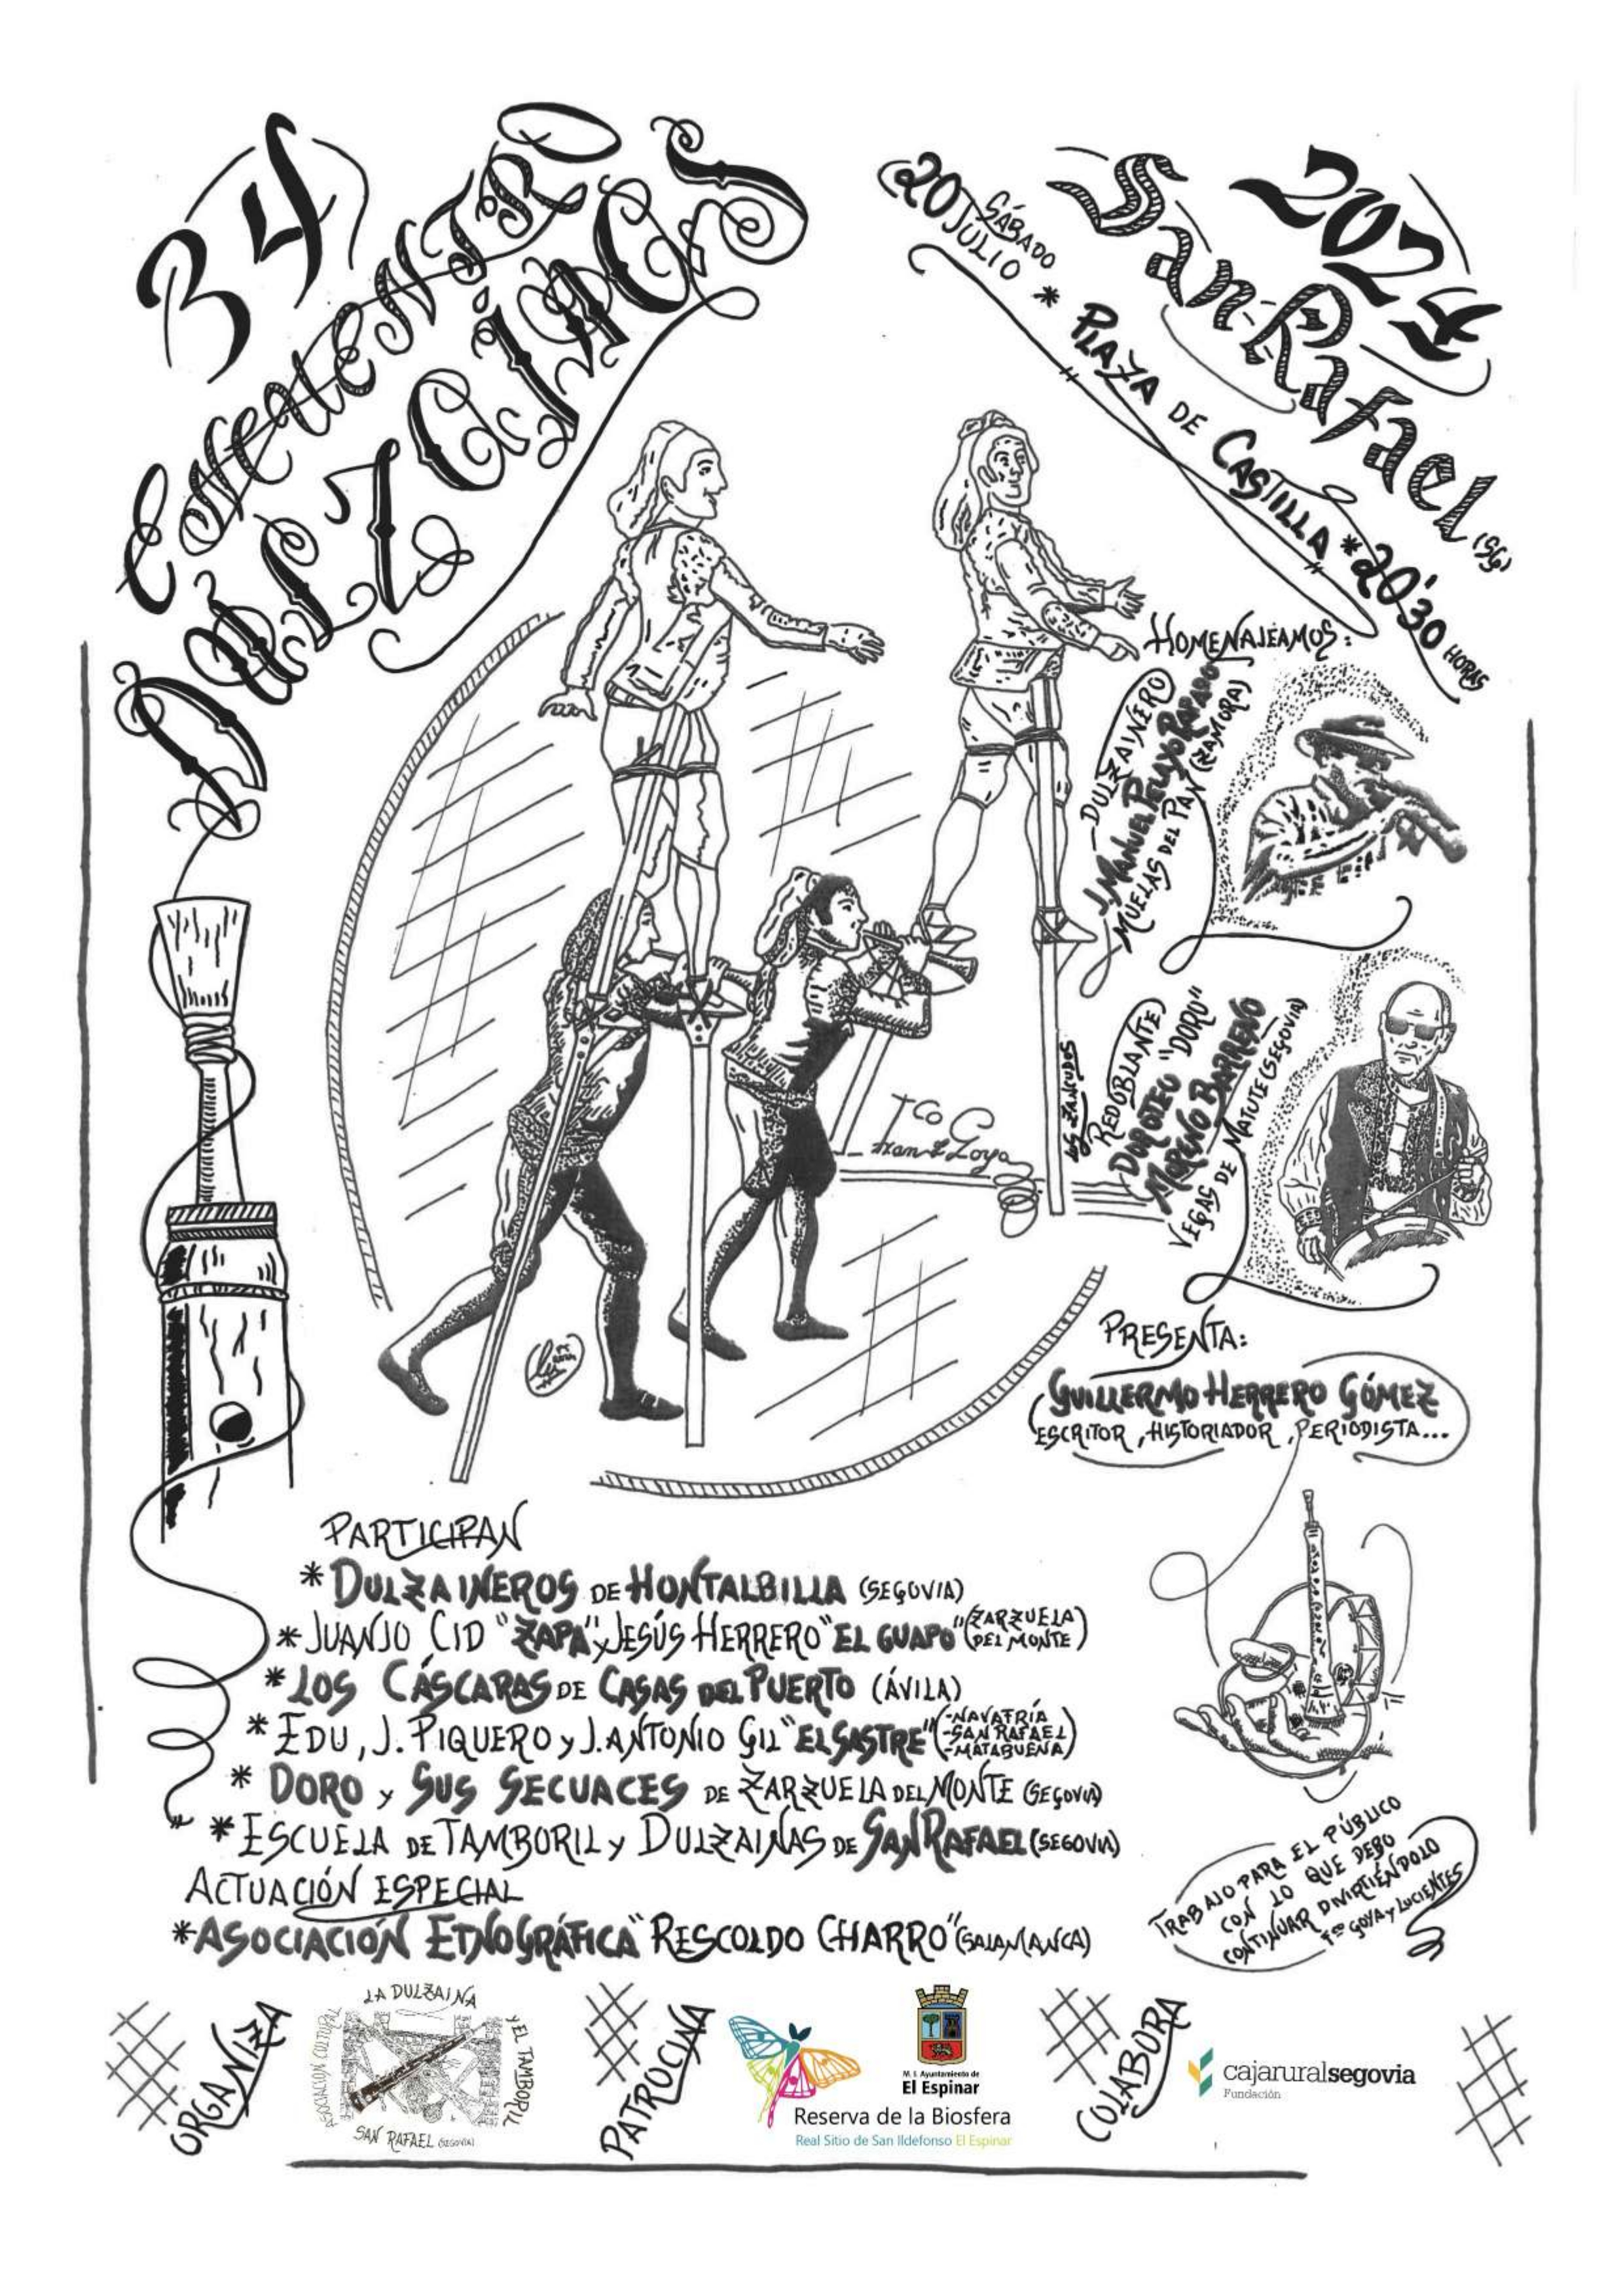 34
Encuentro
Dulzainas
2024
San Rafael (SG)
SÁBADO
(20 JULIO * PLAZA DE CASTILLA * 20'30 HORAS
HOMENAJEAMOS:
DULZAINERO
J. MANUEL PELAYO RAPADO
MUELAS DEL PAN (ZAMORA)
REDOBLANTE
DOROTEO "DORO"
MORENO BARRENO
VEGAS DE MATUTE (SEGOVIA)
LOS ZANCUDOS
Fran.co Goya
PRESENTA:
GUILLERMO HERRERO GÓMEZ
ESCRITOR, HISTORIADOR, PERIODISTA...
PARTICIPAN
* DULZAINEROS DE HONTALBILLA (SEGOVIA)
* JUANJO CID "ZAPA" y JESÚS HERRERO "EL GUAPO" (ZARZUELA DEL MONTE)
* LOS CÁSCARAS DE CASAS DEL PUERTO (ÁVILA)
* EDU, J. PIQUERO y J. ANTONIO GIL "EL SASTRE" (-NAVAFRÍA -SAN RAFAEL -MATABUENA)
* DORO y SUS SECUACES DE ZARZUELA DEL MONTE (SEGOVIA)
* ESCUELA DE TAMBORIL y DULZAINAS DE SAN RAFAEL (SEGOVIA)
ACTUACIÓN ESPECIAL
* ASOCIACIÓN ETNOGRÁFICA "RESCOLDO CHARRO" (SALAMANCA)
TRABAJO PARA EL PÚBLICO
CON LO QUE DEBO
CONTINUAR DIVIRTIÉNDOLO
Fco GOYA y LUCIENTES
ORGANIZA
ASOCIACIÓN CULTURAL
LA DULZAINA
Y EL TAMBORIL
SAN RAFAEL (SEGOVIA)
PATROCINA
M. I. Ayuntamiento de
El Espinar
Reserva de la Biosfera
Real Sitio de San Ildefonso El Espinar
COLABORA
cajaruralsegovia
Fundación